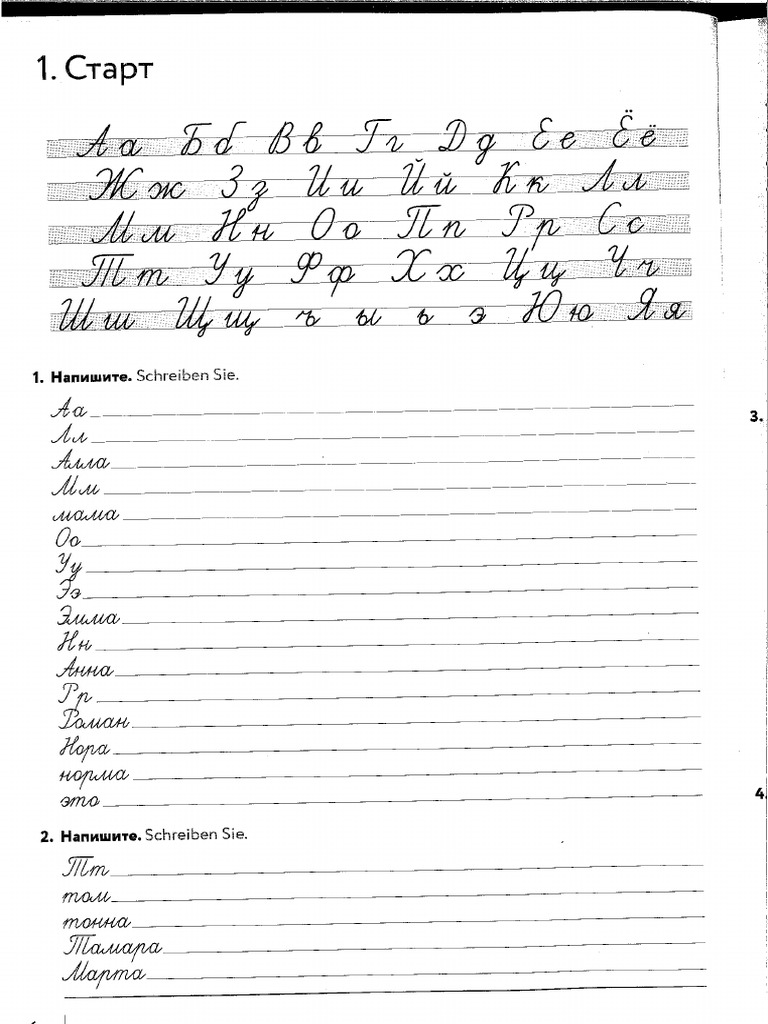 1. Старт
Аа Бб Вв Гг Дд Ее Ёё
Жж Зз Ии Йй Кк Лл
Мм Нн Оо Пп Рр Сс
Тт Уу Фф Хх Цц Чч
Шш Щщ ъ ы ь э Юю Яя
1. Напишите. Schreiben Sie.
Аа
Лл
Алла
Мм
мама
Оо
Уу
Ээ
Эмма
Нн
Анна
Рр
Роман
Нора
норма
это
2. Напишите. Schreiben Sie.
Тт
том
тонна
Тамара
Марта
3.
4.